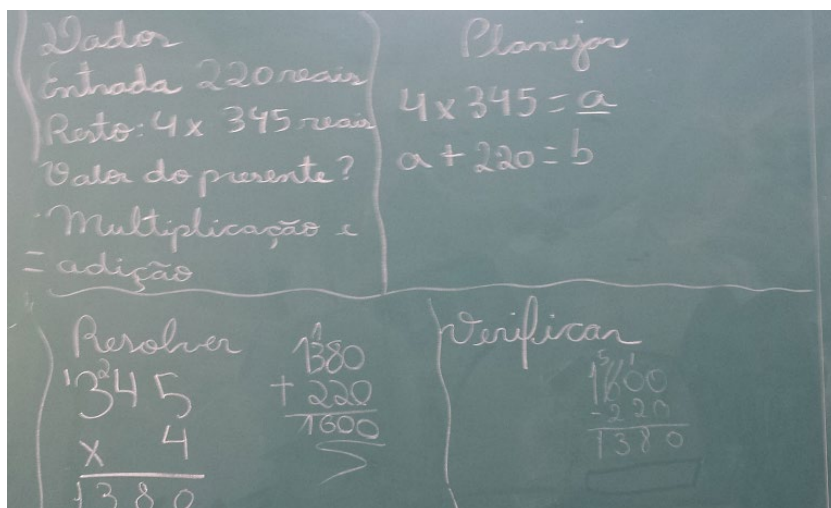 Dados
Entrada 220 reais
Resto: 4 x 345 reais
Valor do presente?
Multiplicação e
= adição
Planejar
4 x 345 = a
a + 220 = b
Resolver
345
x 4
1380
1380
+ 220
1600
Verificar
1600
- 220
1380